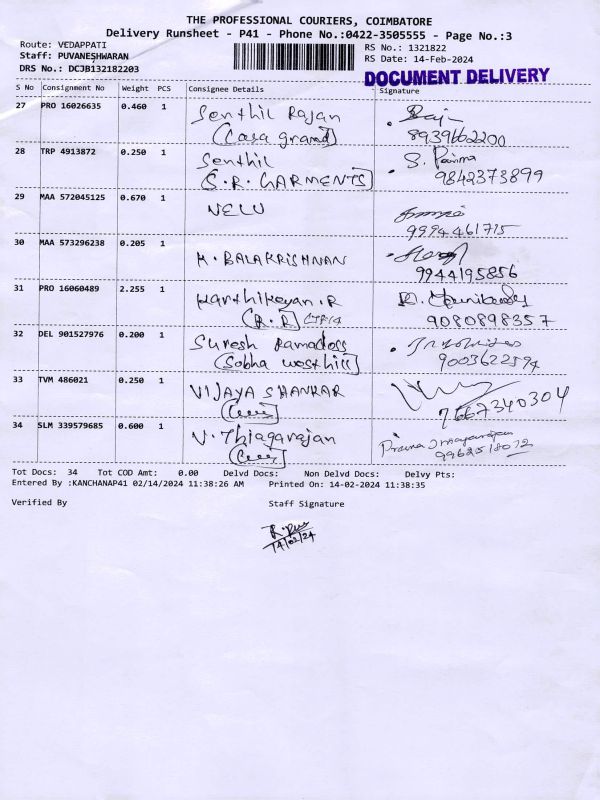 THE PROFESSIONAL COURIERS, COIMBATORE
Delivery Runsheet - P41 - Phone No.:0422-3505555 - Page No.:3
Route: VEDAPPATI
RS No.: 1321822
Staff: PUVANESHWARAN
RS Date: 14-Feb-2024
DRS No.: DCJB132182203
DOCUMENT DELIVERY
S No Consignment No Weight PCS Consignee Details Signature
27 PRO 16026635 0.460 1 Senthil Rajan
(Casa grand) 8939662200
28 TRP 4913872 0.250 1 Senthil
S.R. GARMENTS 9842373899
29 MAA 572045125 0.670 1 NELU
9994461715
30 MAA 573296238 0.205 1 M. BALAKRISHNAN
9944195856
31 PRO 16060489 2.255 1 Karthikeyan.R
(R.R) 9080898357
32 DEL 901527976 0.200 1 Suresh Ramadoss
(Sobha west hill) 9003622594
33 TVM 486021 0.250 1 VIJAYA SHANKAR
7667340304
34 SLM 339579685 0.600 1 V. Thiagarajan
9962518072
Tot Docs: 34 Tot COD Amt: 0.00 Delvd Docs: Non Delvd Docs: Delvy Pts:
Entered By :KANCHANAP41 02/14/2024 11:38:26 AM Printed On: 14-02-2024 11:38:35
Verified By Staff Signature
14/02/24